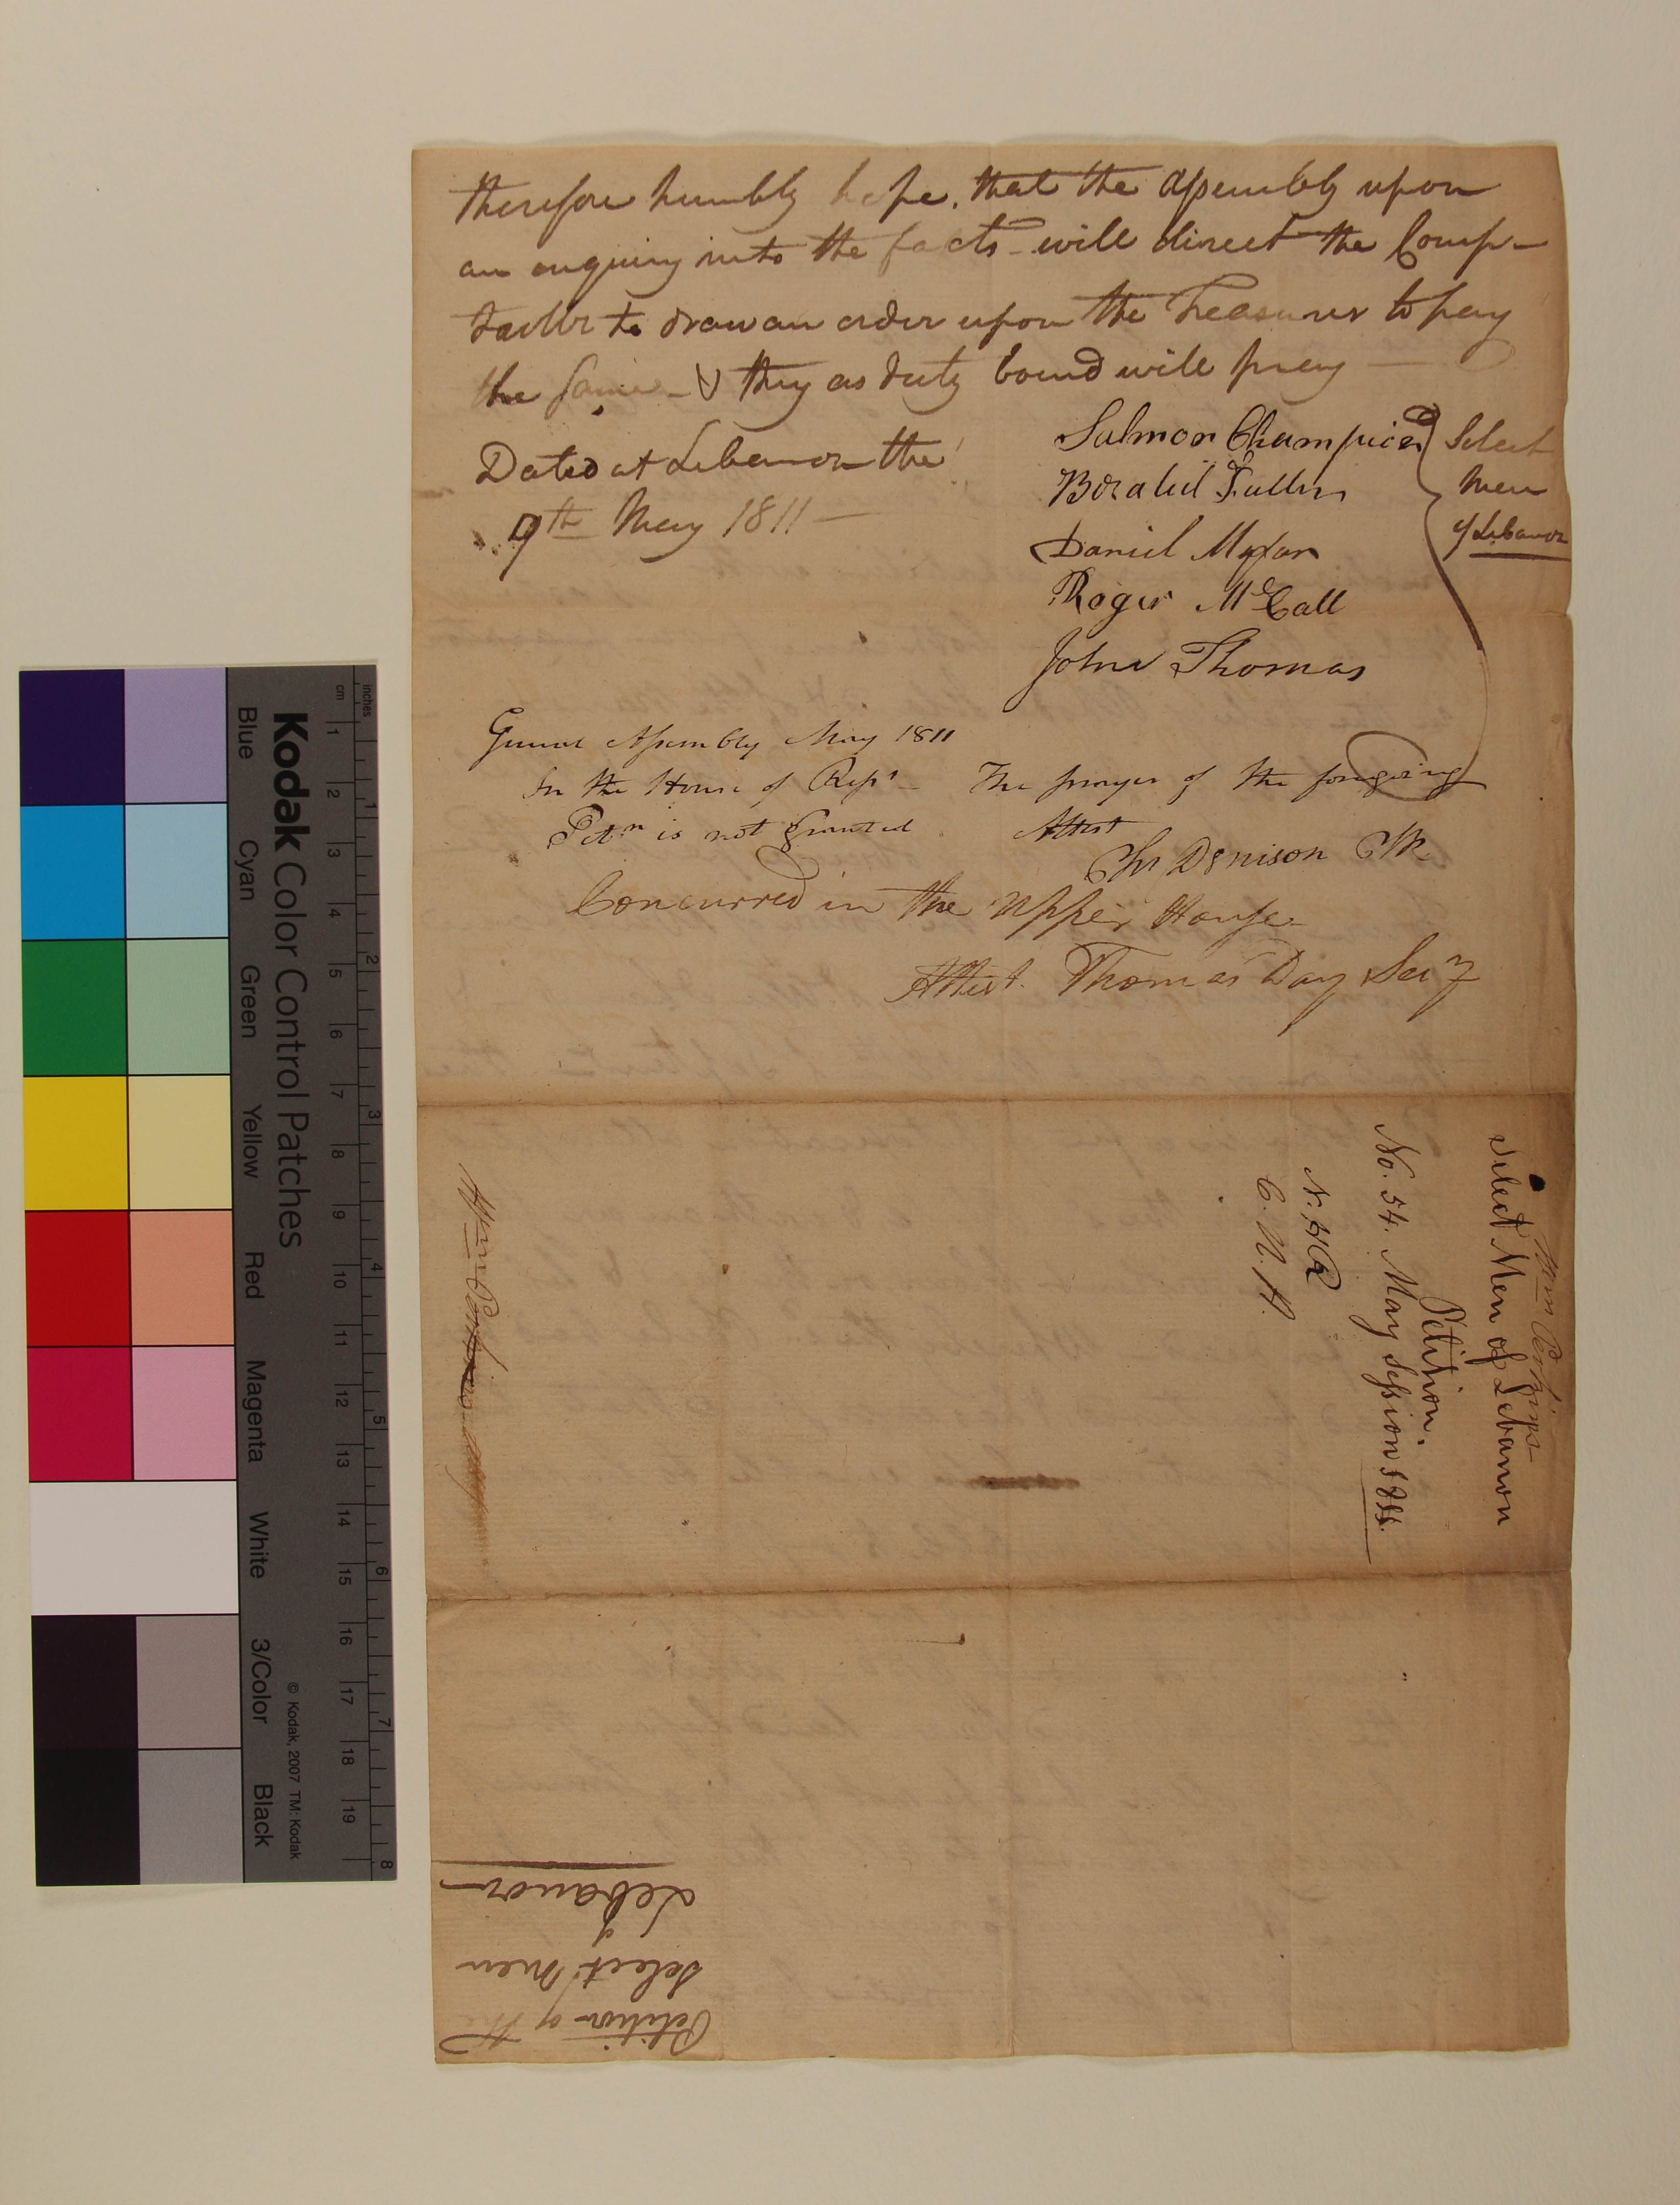 therefore humbly hope, that the Assembly upon
an enquiry into the facts - will direct the Comp-
troller to draw an order upon the Treasurer to pay
the same - & they as duty bound will pray —
Dated at Lebanon the
9th May 1811 —
Salmon Champion
Bezaleel Fuller
Daniel Mason
Roger McCall
John Thomas
Select
Men
of Lebanon
General Assembly May 1811
In the House of Reps - The prayer of the foregoing
Petn is not Granted Attest
Chs Denison Clk
Concurred in the Upper House
Attest. Thomas Day Secy
Wm Perkins
Select Men of Lebanon
Petition.
No. 54. May Session 1811.
N. H R
C. U. H.
Wm Perkins
Petition of the
Select Men
of
Lebanon
Kodak Color Control Patches
© Kodak, 2007 TM: Kodak
Blue Cyan Green Yellow Red Magenta White 3/Color Black
inches 1 2 3 4 5 6 7 8
cm 1 2 3 4 5 6 7 8 9 10 11 12 13 14 15 16 17 18 19